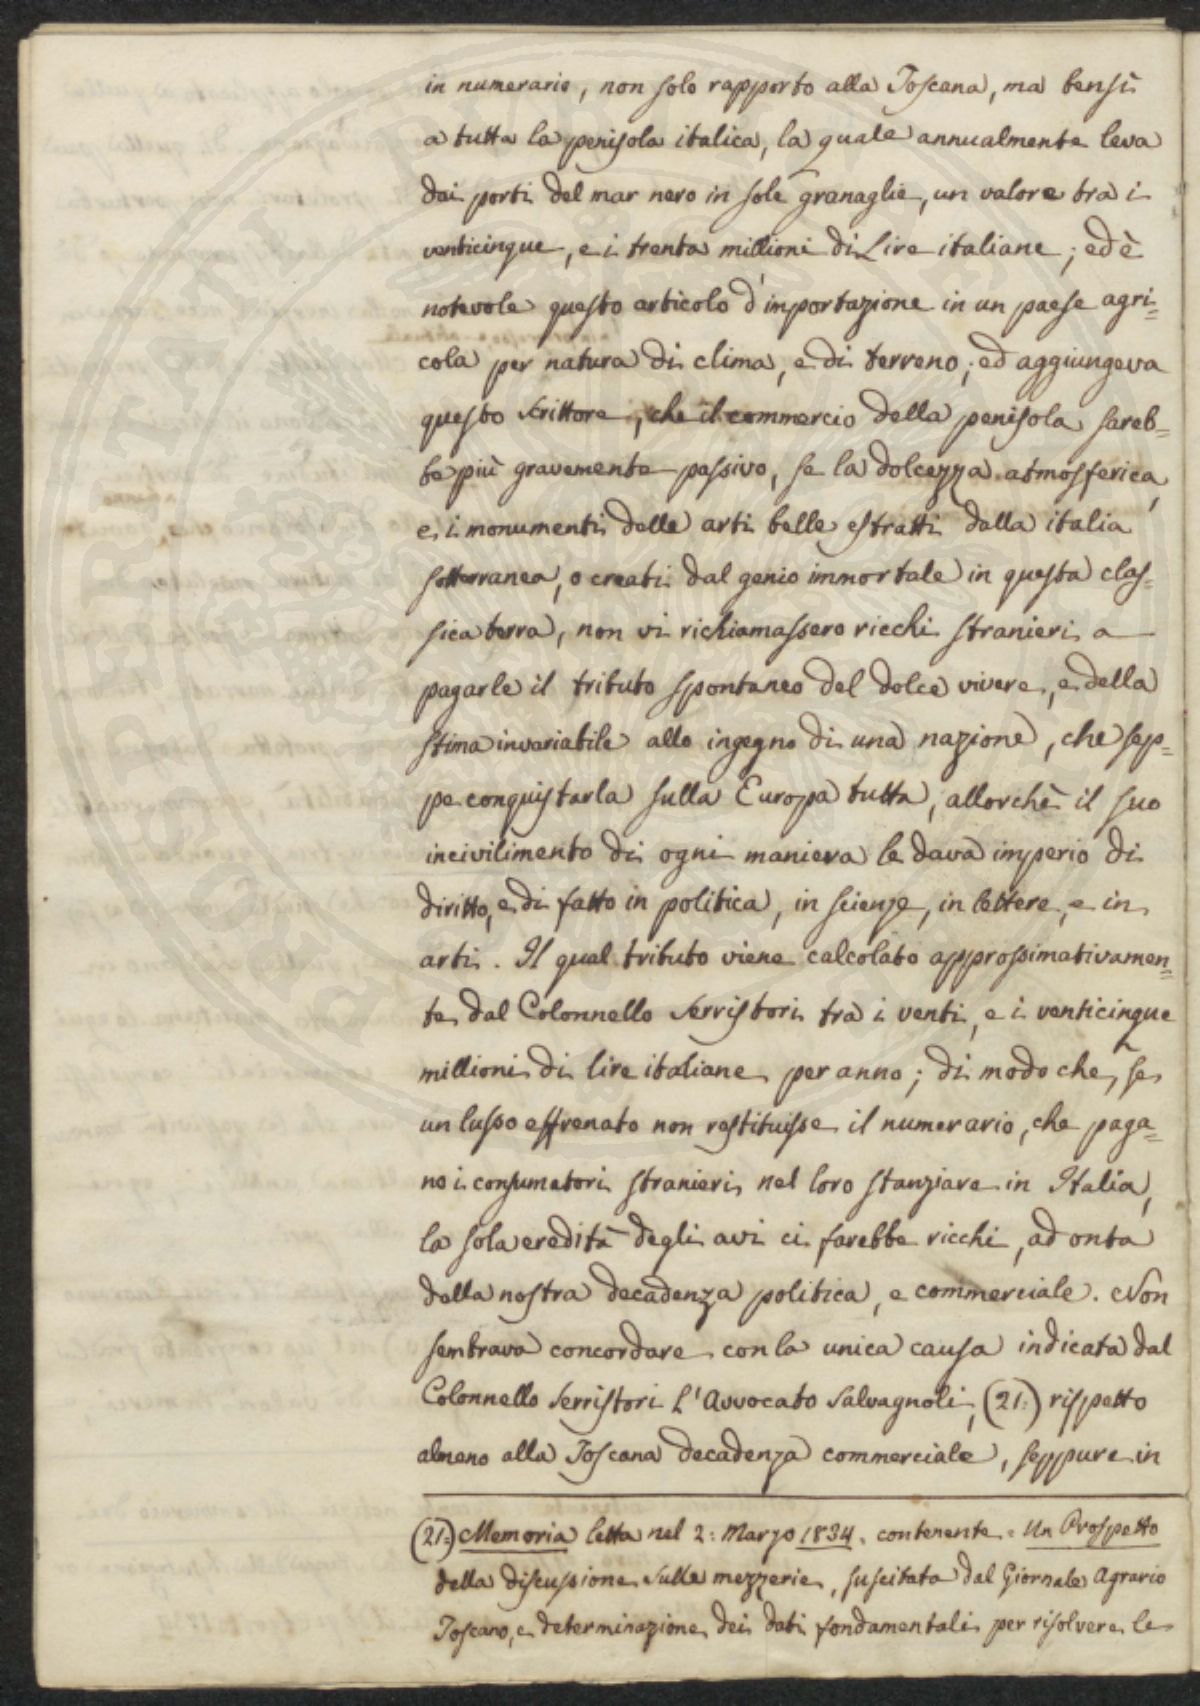 in numerario, non solo rapporto alla Toscana, ma bensì
a tutta la penisola italica, la quale annualmente leva
dai porti del mar nero in sole granaglie, un valore tra i
venticinque, e i trenta millioni di Lire italiane; ed è
notevole questo articolo d'importazione in un paese agri=
cola per natura di clima, e di terreno; ed aggiungeva
questo Scrittore, che il commercio della penisola sareb=
be più gravemente passivo, se la dolcezza atmosferica,
e i monumenti delle arti belle estratti dalla italia
sotterranea, o creati dal genio immortale in questa clas=
sica terra, non vi richiamassero ricchi stranieri a
pagarle il tributo spontaneo del dolce vivere, e della
stima invariabile allo ingegno di una nazione, che sep=
pe conquistarla sulla Europa tutta, allorchè il suo
incivilimento di ogni maniera le dava imperio di
diritto, e di fatto in politica, in scienze, in lettere, e in
arti. Il qual tributo viene calcolato approssimativamen=
te dal Colonnello Serristori tra i venti, e i venticinque
millioni di lire italiane per anno; di modo che, se
un lusso effrenato non restituisse il numerario, che paga=
no i consumatori stranieri nel loro stanziare in Italia,
la sola eredità degli avi ci farebbe ricchi, ad onta
della nostra decadenza politica, e commerciale. Non
sembrava concordare con la unica causa indicata dal
Colonnello Serristori L'Avvocato Salvagnoli, (21:) rispetto
almeno alla Toscana decadenza commerciale, seppure in
(21:) Memoria letta nel 2: Marzo 1834. contenente = Un Prospetto
della discussione sulle mezzerie, suscitata dal Giornale Agrario
Toscano, e determinazione dei dati fondamentali per risolvere le